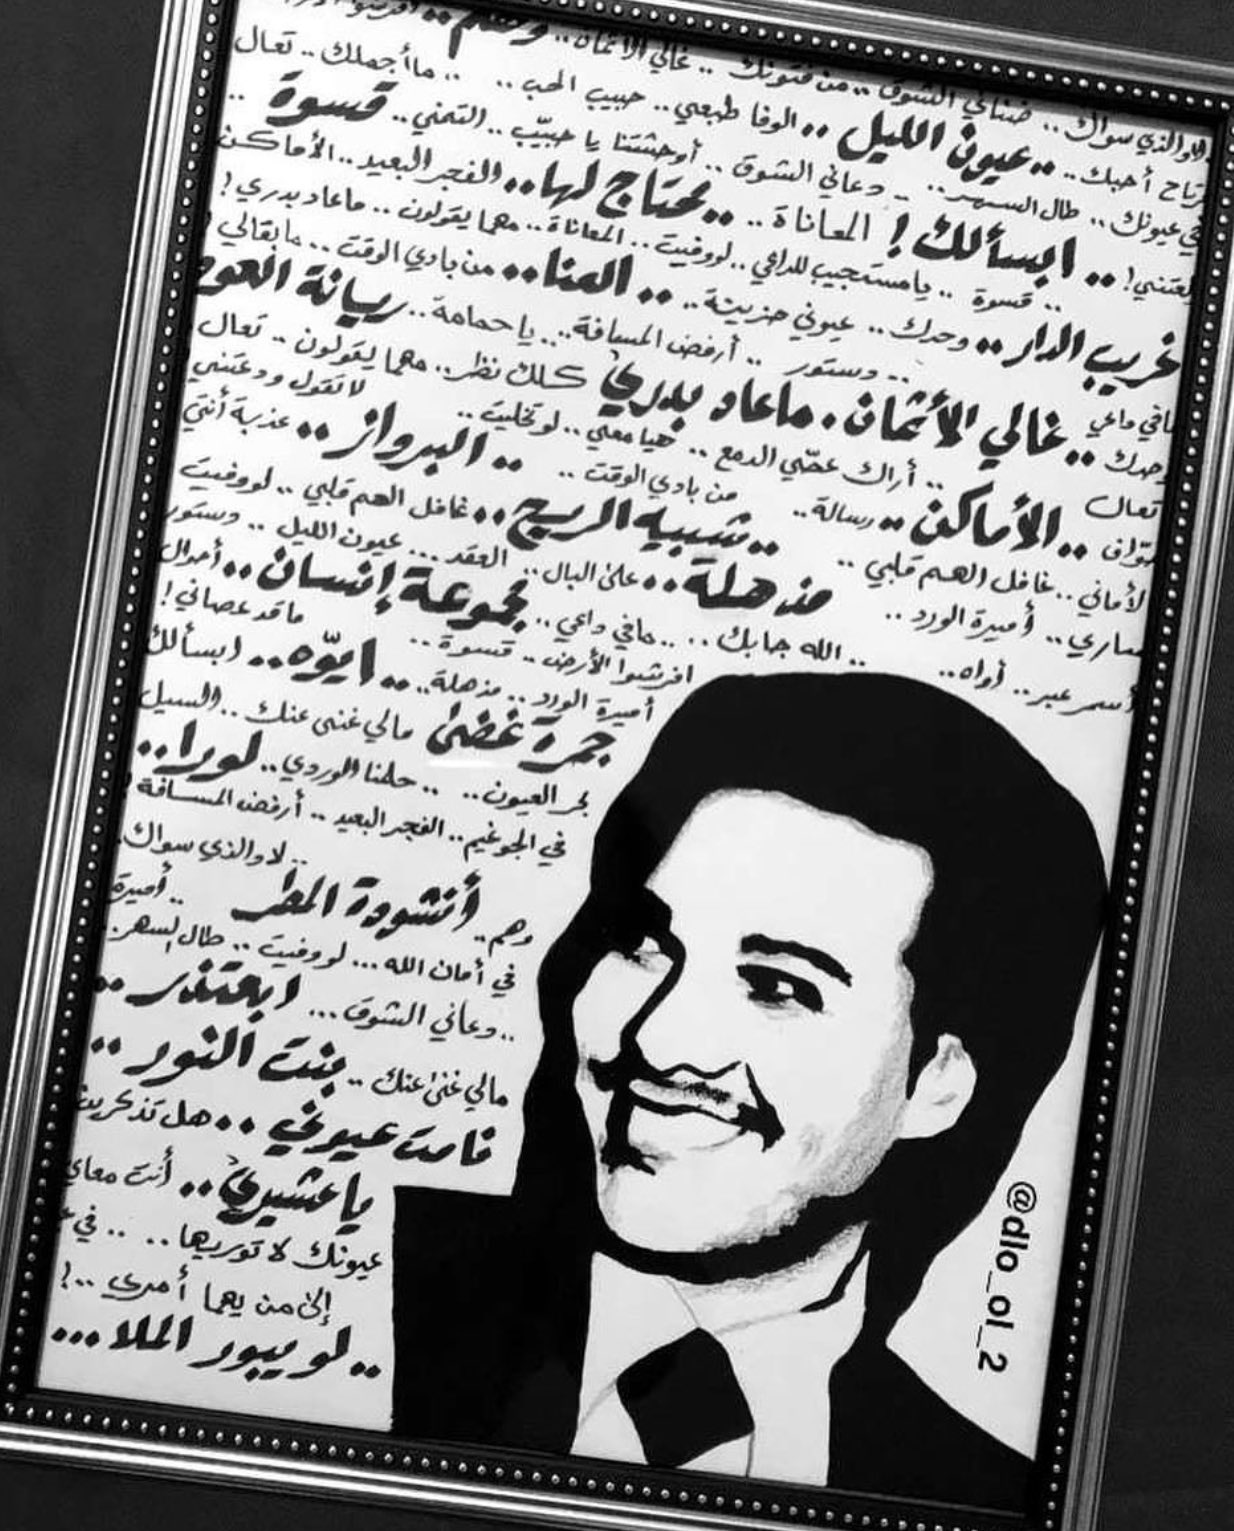 لا والذي سواك .. ضناني الشوق .. من فتونك .. غالي الأثمان .. وهم ..
أحبك .. عيون الليل .. الوفا طبعي .. حبيب الحب .. ما أجملك .. تعال
في عيونك .. طال السهر .. دعاني الشوق .. أوحشتنا يا حبيّب .. التمني .. قسوة ..
ابسألك ! المعاناة .. محتاج لها .. الفجر البعيد .. الأماكن
قسوة .. يا مستجيب للداعي .. لو وفيت .. المعاناة .. مهما يقولون .. ما عاد بدري !
غريب الدار .. وحدك .. عيوني حزينة .. العنا .. من بادي الوقت .. ما بقالي !
ودستور .. أرفض المسافة .. يا حمامة .. ريانة العود
ما في داعي
وحدك .. غالي الأثمان . ما عاد بدري كلك نظر .. مهما يقولون .. تعال
.. أراك عصّي الدمع .. هيا معي .. لو تخليت .. لا تقول ودعتني
تعال .. الأماكن .. رسالة .. من بادي الوقت .. البرواز .. عذبة أنتي
لأماني .. غافل الهم قلبي .. شبيه الريح .. غافل الهم قلبي .. لو وفيت
ساري .. أميرة الورد .. مذهلة .. على البال .. العقد ... عيون الليل .. ودستور
أسمر عبر .. أواه .. الله جابك .. ما في داعي .. مجموعة إنسان .. أحوال
افرشوا الأرض .. قسوة .. ما قد عصاني !
أميرة الورد .. مذهلة .. ايوّه .. ابسألك
جمرة غضى مالي غنى عنك .. السيل
بحر العيون .. حلمنا الوردي .. لورا ..
في الجو غيم .. الفجر البعيد .. أرفض المسافة !
.. لا والذي سواك .
وهم .. أنشودة المطر .. أميرة
في أمان الله ... لو وفيت .. طال السهر ..
.. دعاني الشوق ... ابعتذر ..
مالي غنى عنك .. بنت النور ..
نامت عيوني .. هل تذكرين
يا عشيري .. أنت معاي
عيونك لا توريها .. .. في
إلى من يهما أمري .. !
.. لو يبور الملا ...
@dlo_ol_2